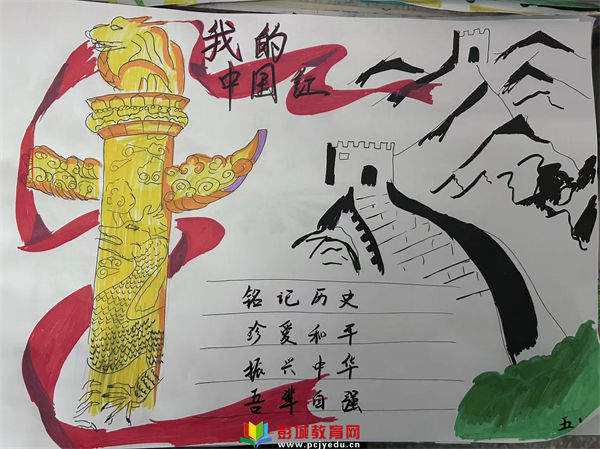 我的
中国红
铭记历史
珍爱和平
振兴中华
吾辈自强
五1
彭城教育网
www.pcjyedu.cn